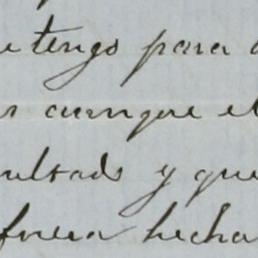 e tengo para
s aunque el
ultado y que
fuera hecha